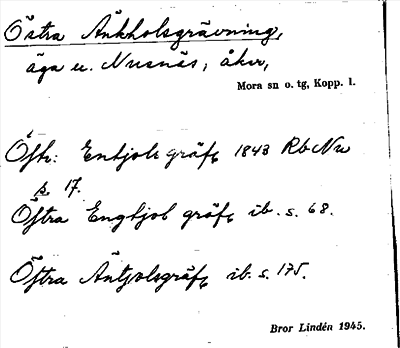 Östra Änkholsgrävning,
äga u. Nusnäs, åker,
Mora sn o. tg, Kopp. l.
Öftr: Enhjols gräf, 1843 Rb Nu
s. 17.
Öftra Enghjol gräf, ib. s. 68.
Öftra Äntjolsgräf, ib. s. 175.
Bror Lindén 1945.